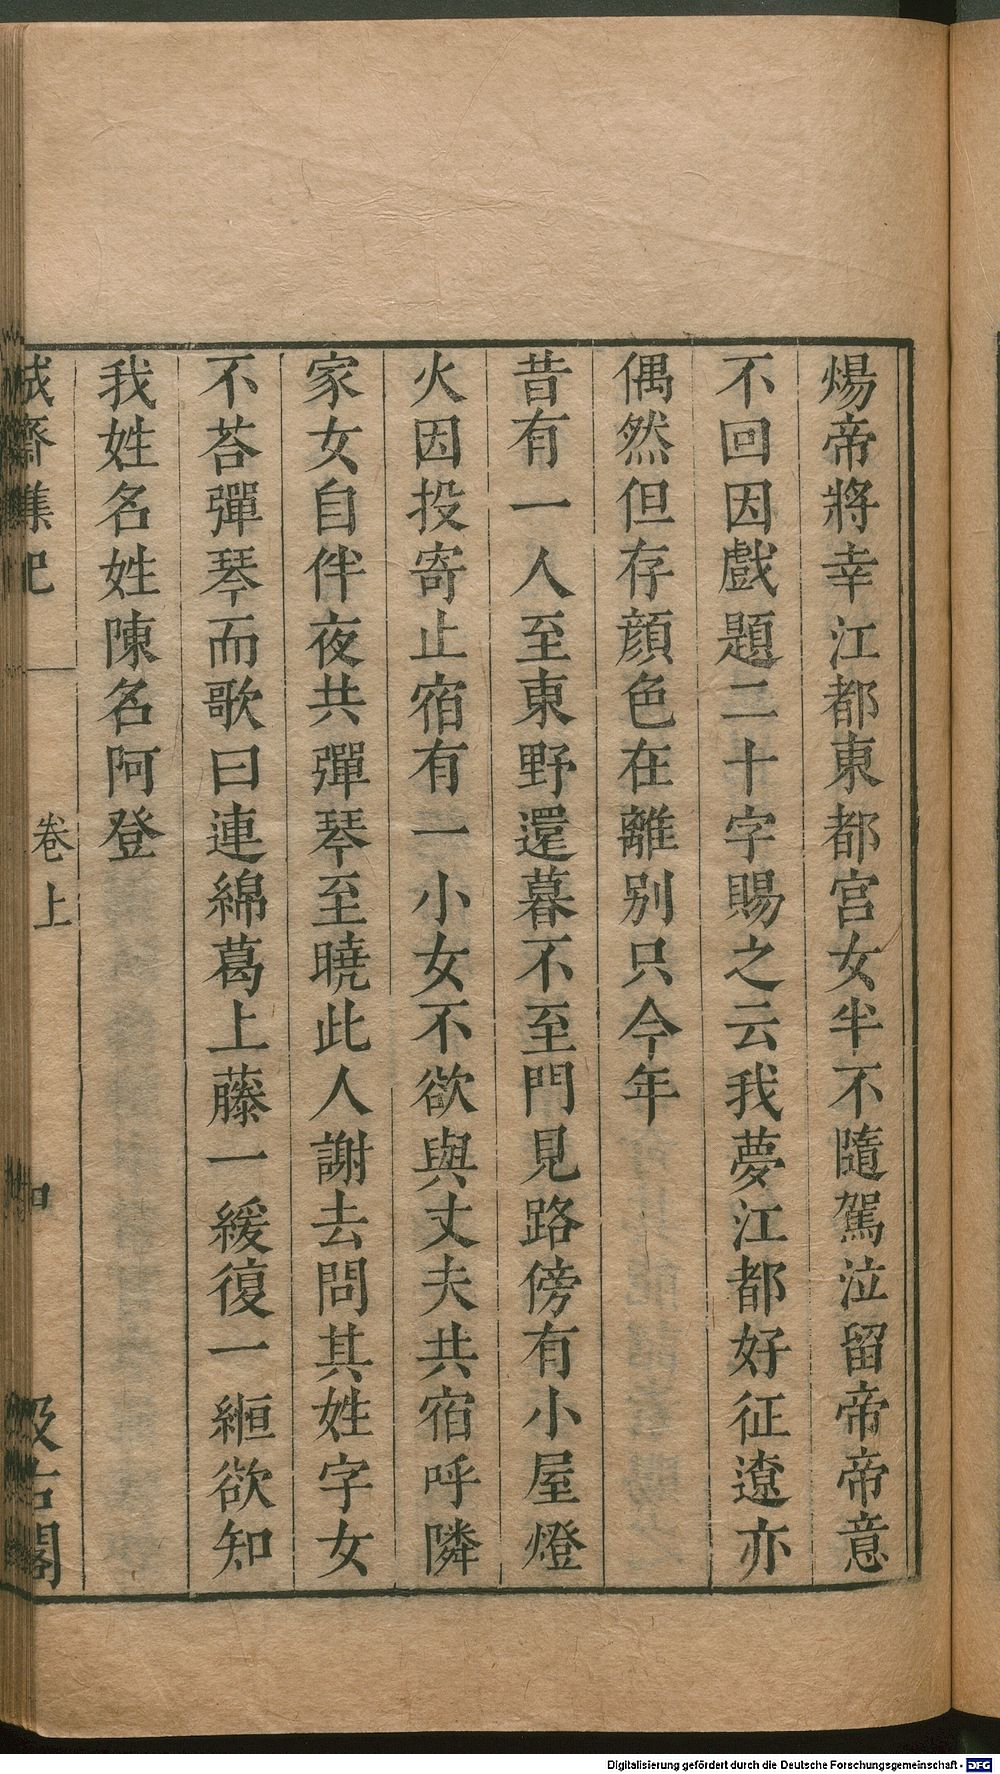 煬帝將幸江都東都宮女半不隨駕泣留帝帝意
不回因戲題二十字賜之云我夢江都好征遼亦
偶然但存顔色在離别只今年
昔有一人至東野還暮不至門見路傍有小屋燈
火因投寄止宿有一小女不欲與丈夫共宿呼隣
家女自伴夜共彈琴至曉此人謝去問其姓字女
不荅彈琴而歌曰連綿葛上藤一緩復一縆欲知
我姓名姓陳名阿登
誠齋集記
卷上
汲古閣
Digitalisierung gefördert durch die Deutsche Forschungsgemeinschaft - DFG